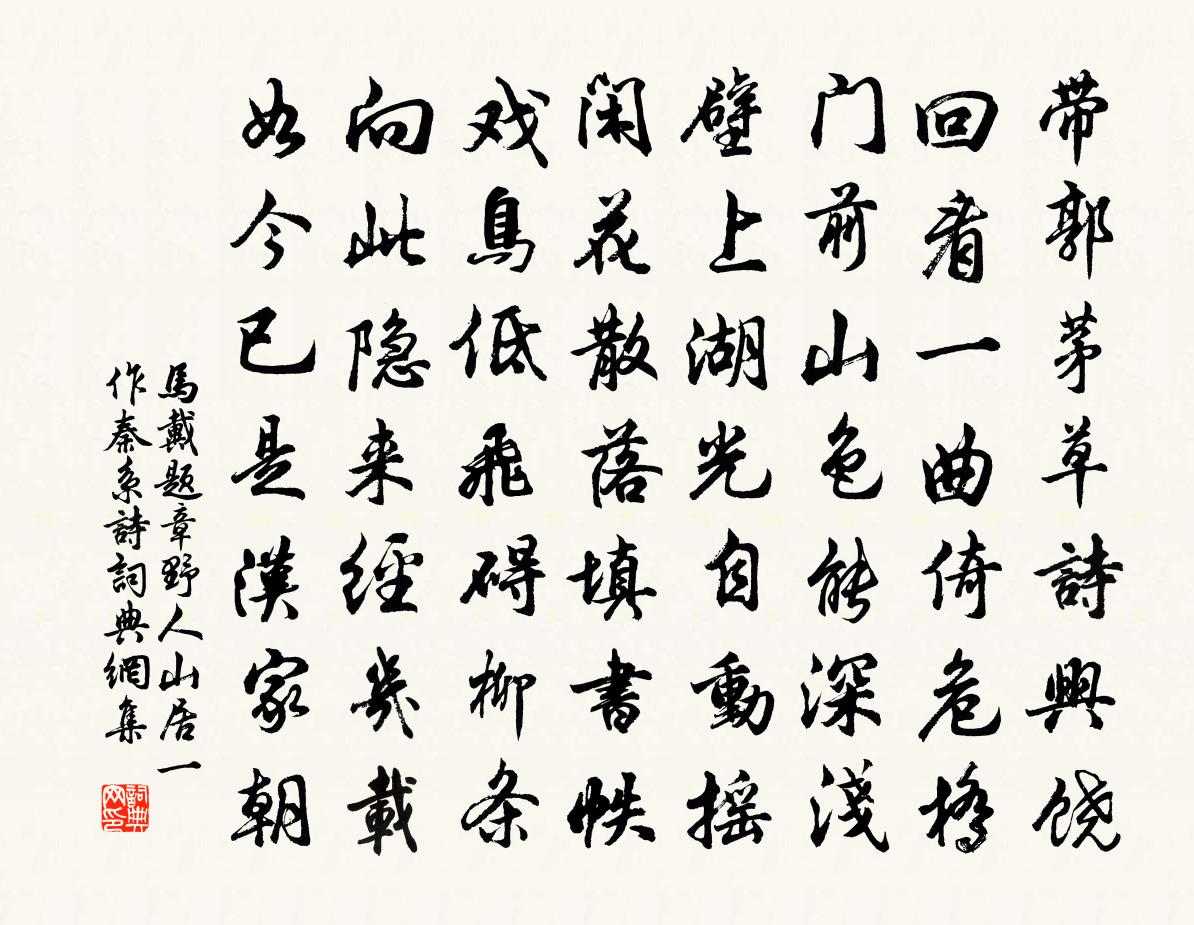 带郭茅草詩興饶
回看一曲倚危橋
门前山色能深淺
壁上湖光自動摇
闲花散落填書帙
戏鳥低飛碍柳条
向此隐来經幾載
如今已是漢家朝
馬戴题章野人山居一
作秦系詩詞典網集
詞典
网印